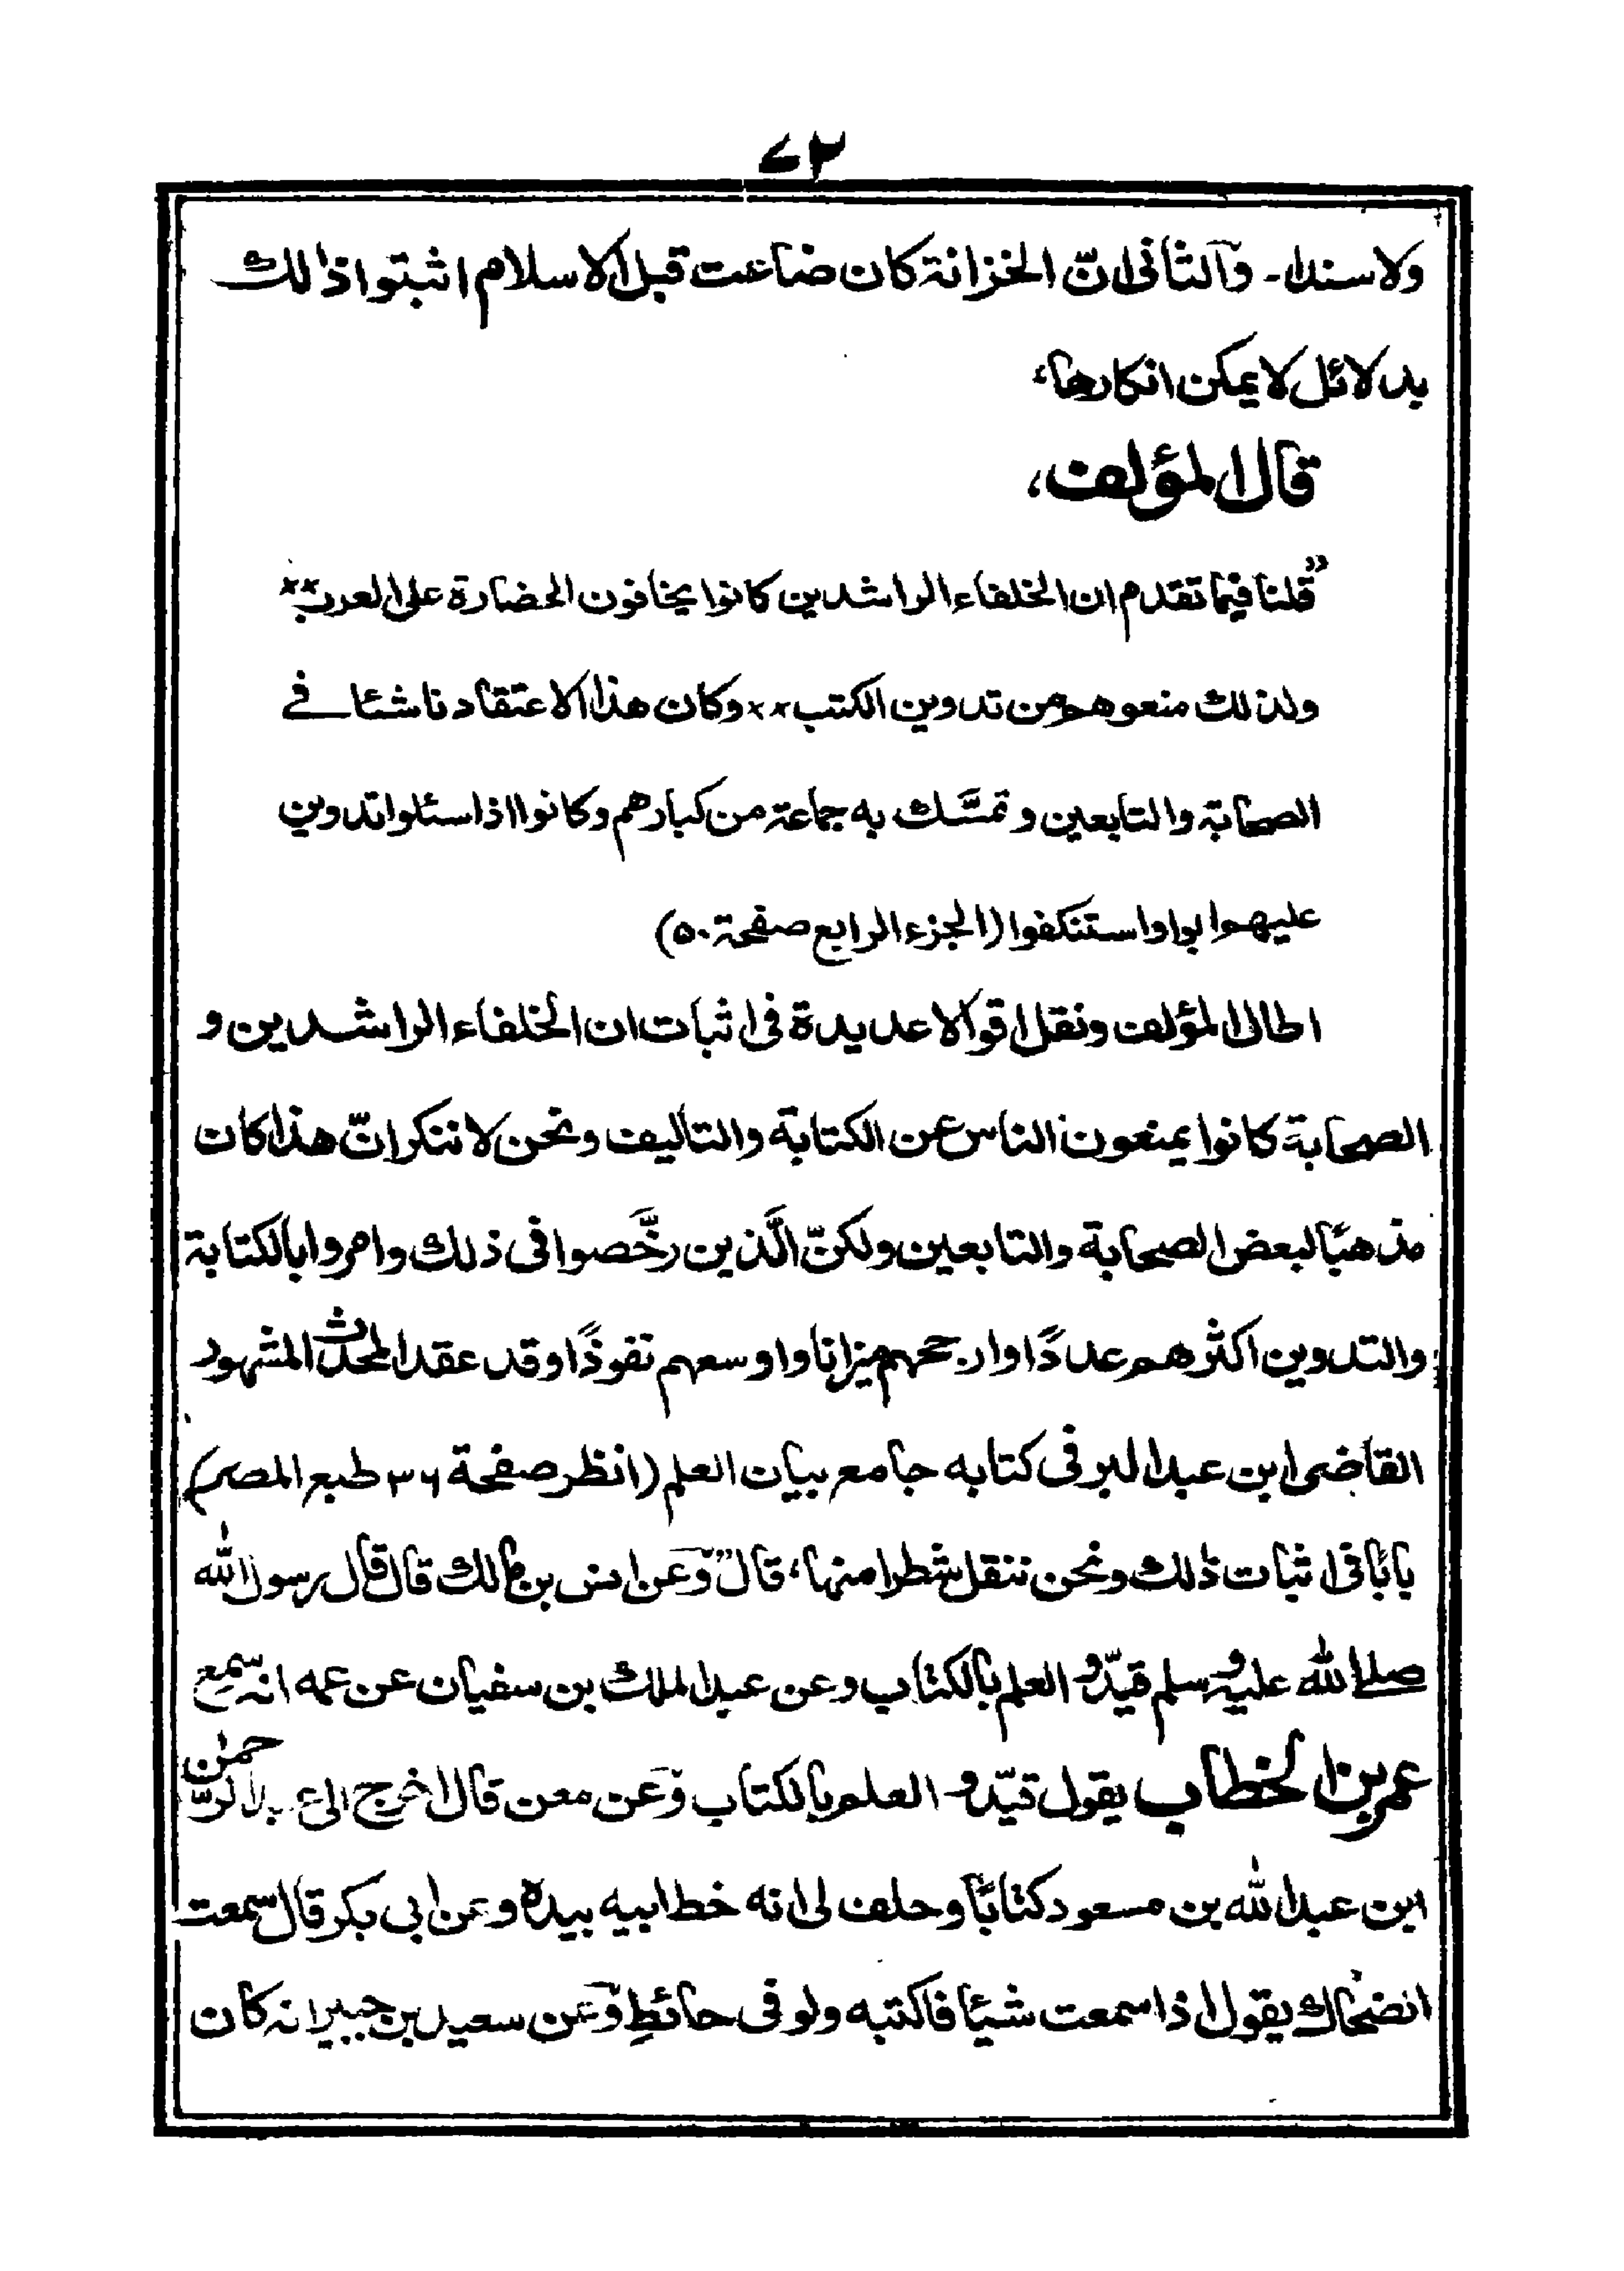 ٧٢
ولا سندا۔ والثانی انّ الخزانة کان ضاعت قبل الاسلام اثبتوا ذالك
بدلائل لا یمکن انکارها،
قال المؤلف،
"قلنا فیما تقدم ان الخلفاء الراشدین کانوا یخافون الحضارة علی العرب××
ولذلك منعوهم من تدوین الکتب×× وکان هذا الاعتقاد ناشئا فے
الصحابة والتابعین وتمسَّك به جماعة من کبارهم وکانوا اذا سئلوا تدوین
علیهم ابوا واستنکفوا (الجزء الرابع صفحة ٥٠)
اطال المؤلف ونقل اقوالا عدیدة فی اثبات ان الخلفاء الراشدین و
الصحابة کانوا یمنعون الناس عن الکتابة والتالیف ونحن لا ننکر انّ هذا کان
مذهبًا لبعض الصحابة والتابعین ولکنّ الَّذین رخَّصوا فی ذلك وامروا بالکتابة
والتدوین اکثرهم عددًا وارجحهم میزانا واوسعهم نفوذًا وقد عقد المحدث المشهور
القاضی ابن عبد البر فی کتابه جامع بیان العلم (انظر صفحة ٣٦ طبع المصر)
بابًا فی اثبات ذلك ونحن ننقل شطرا منها، قال "وعن انس بن مالك قال قال رسول الله
صلے الله علیه وسلم قیّدوا العلم بالکتاب وعن عبد الملك بن سفیان عن عمه انه سمع
عمر بن الخطاب یقول قیّدوا العلم بالکتاب وعن معن قال اخرج الی عبد الرحمٰن
ابن عبد الله بن مسعود کتابًا وحلف لی انه خط ابیه بیده وعن ابی بکر قال سمعت
الضحاك یقول اذا سمعت شیئا فاکتبه ولو فی حائطٍ وعن سعید بن جبیر انه کان